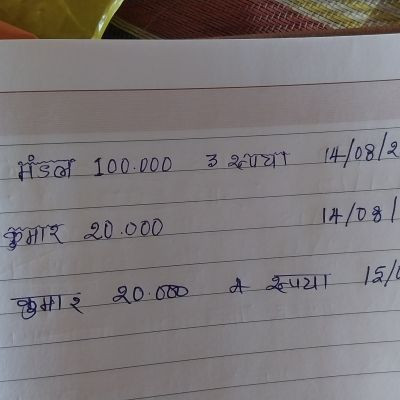 मंडल 100.000 3 रुपया 14/08/2
कुमार 20.000 14/08/
कुमार 20.000 4 रुपया 15/0